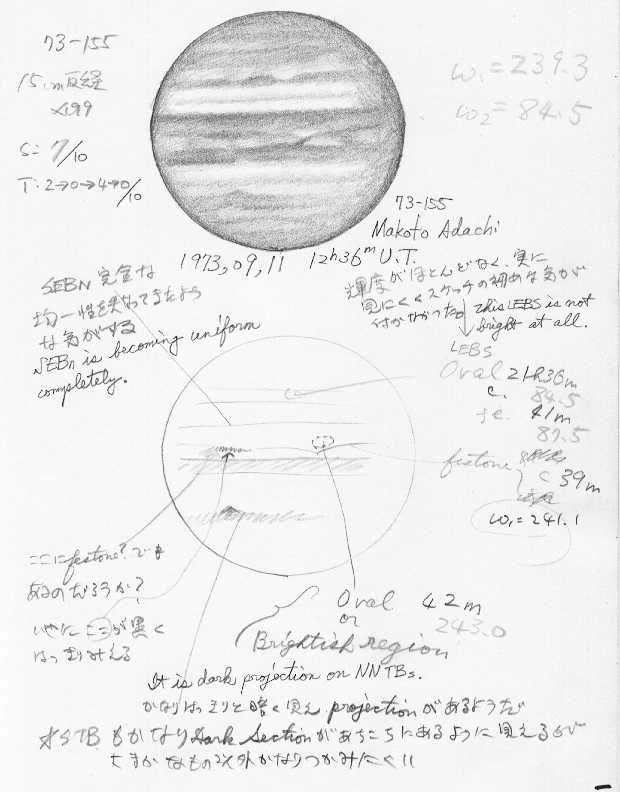 73-155
15cm反経
×199
S: 7/10
T: 2→0→4→0/10
ω₁=239.3
ω₂=84.5
73-155
Makoto Adachi
1973,09,11 12h36m U.T.
SEBn 完全な
均一性を
な気がする
SEBn is becoming uniform
completely.
輝度がほとんどなく、実に
見にくくスケッチの初めな気が
付かなかった。
this LEBS is not
bright at all.
LEBS
Oval 21h36m
c. 84.5
f.e. 41m
87.5
festone
c 39m
ω₁=241.1
ここにfestone?でも
あるのだろうか?
ここが黒く
はっきりみえる
Oval 42m
or 243.0
Brightish region
It is dark projection on NNTBs.
かなりはっきりと暗く見え projectionがあるようだ
*STBもかなりdark sectionがあちこちにあるように見えるが
たまかなもの以外かなりつかみにくい